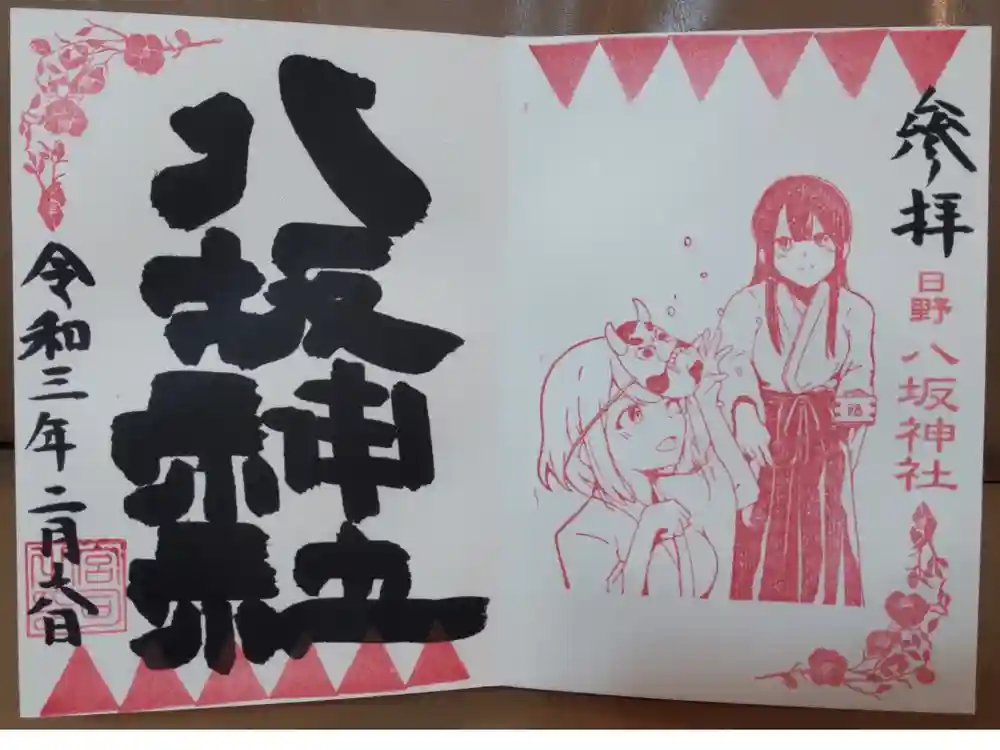 参拝
日野
八坂神社
八坂神社
令和三年二月六日